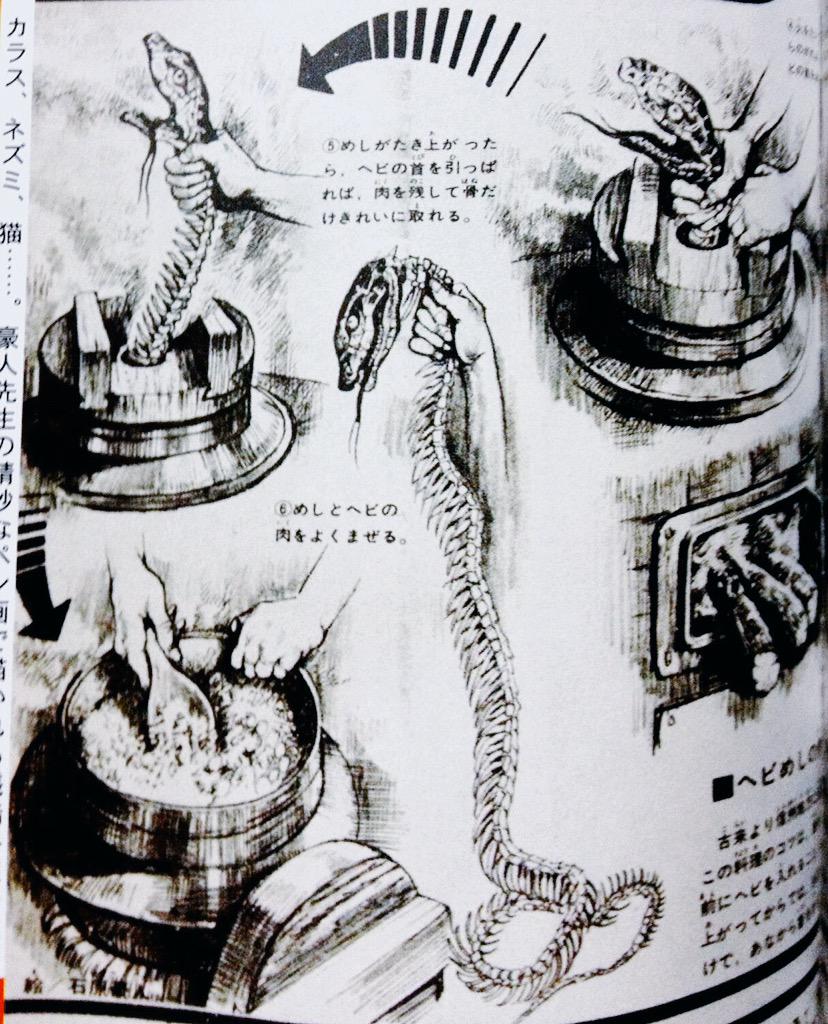 カラス、ネズミ、猫……。豪人先生の精妙なペン画で描かれ
⑤めしがたき上がった
ら、ヘビの首を引っぱ
れば、肉を残して骨だ
けきれいに取れる。
⑥めしとヘビの
肉をよくまぜる。
■ヘビめしの
古来より信州
この料理のコツは、
前にヘビを入れる
上がってからでは、
けで、あなから
絵／石原豪人